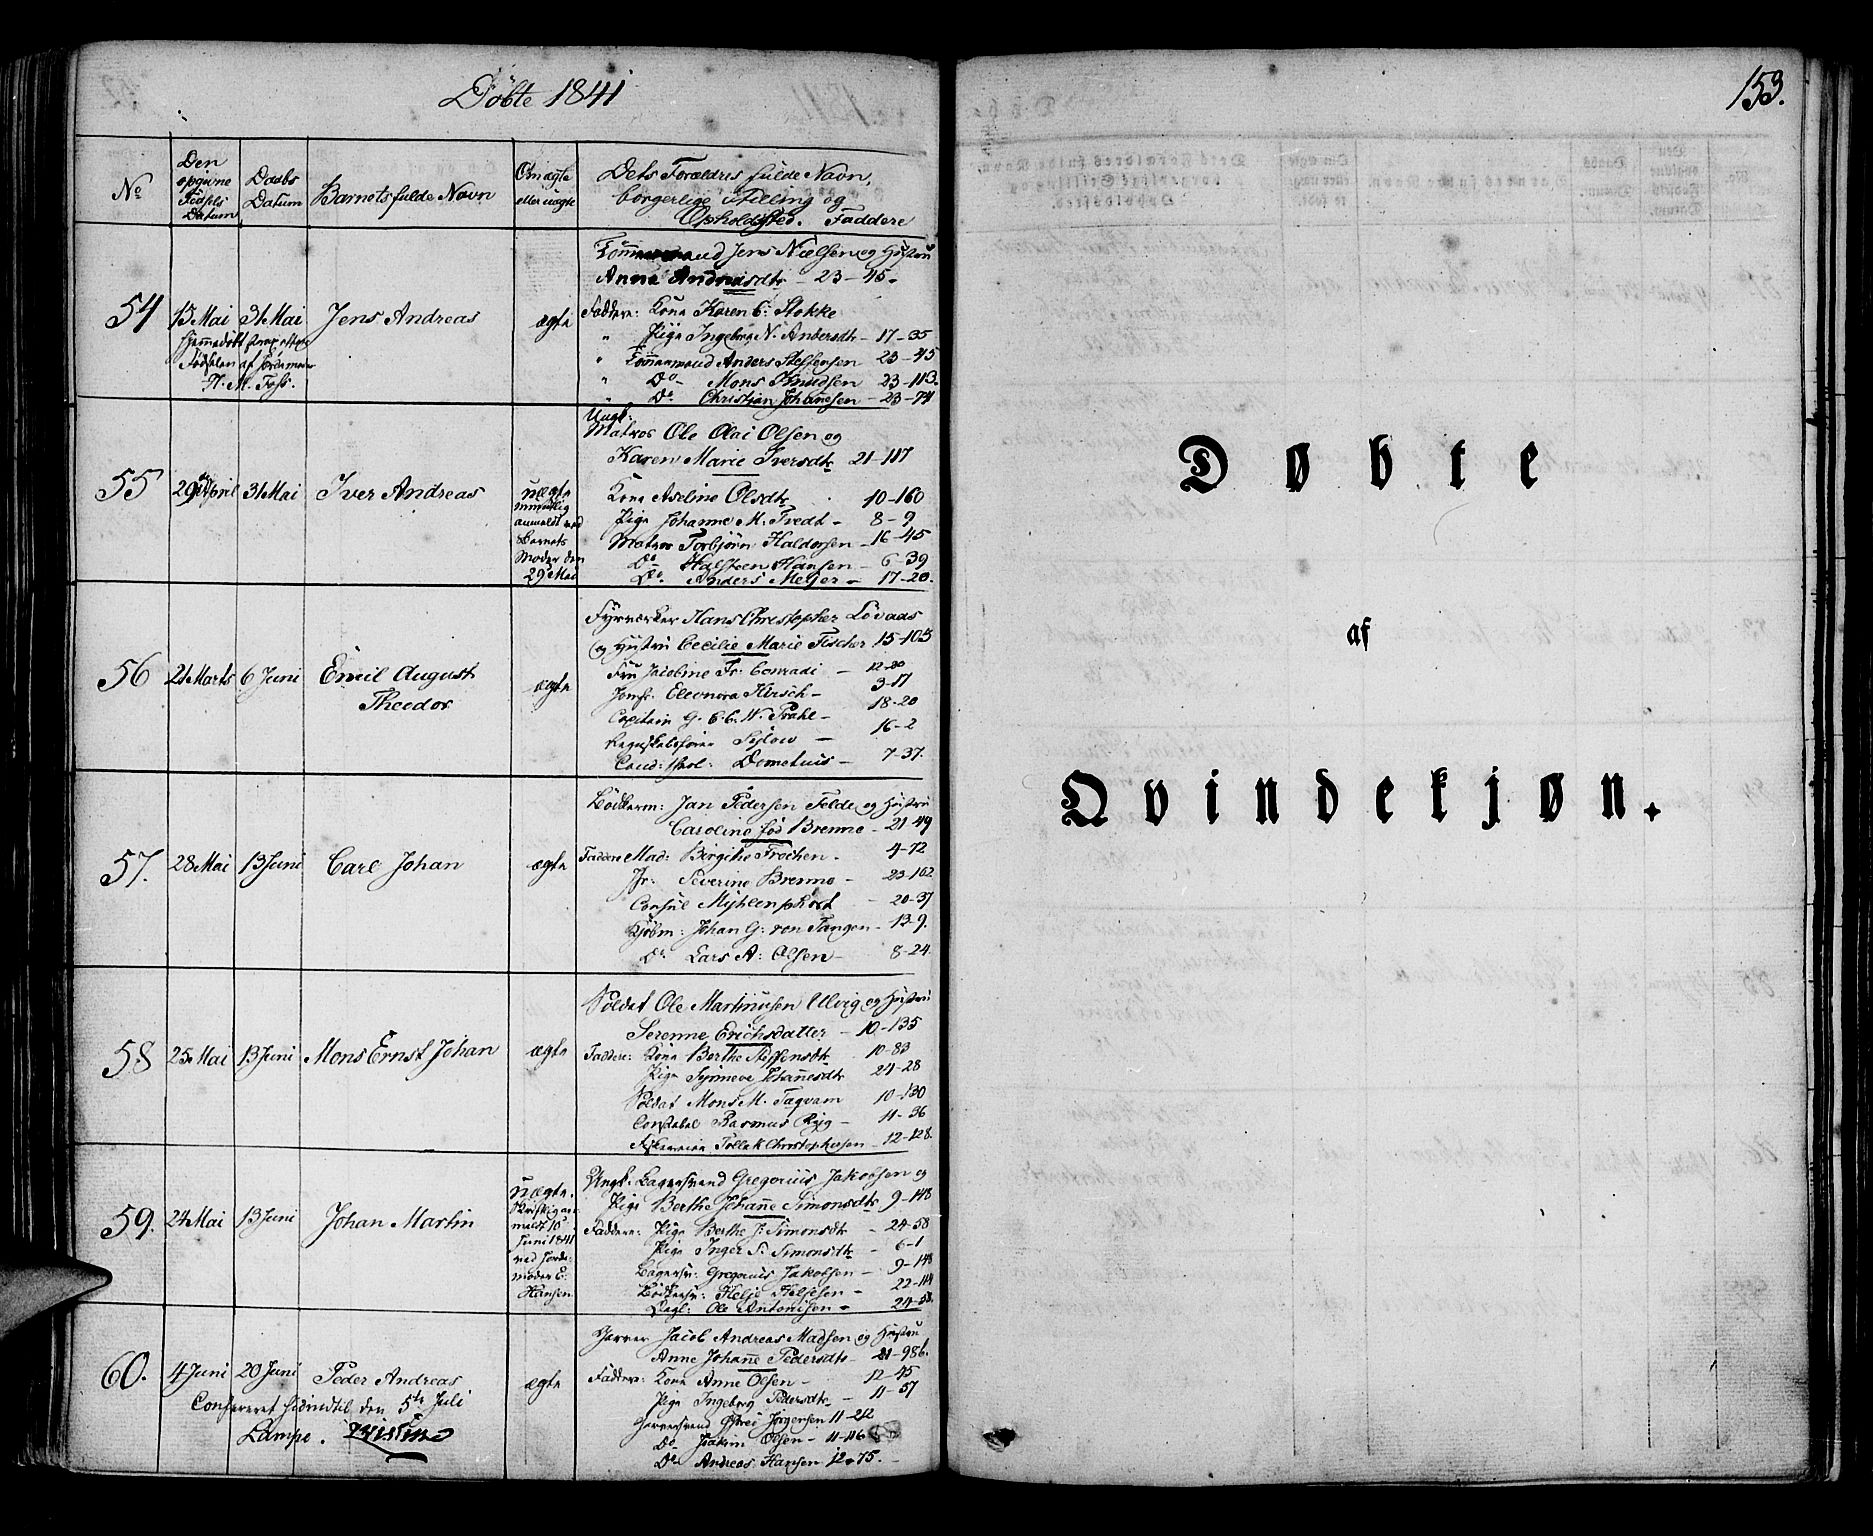 Döbte 1841
153.
No
Den opgivne Födsels Datum
Daabs Datum
Barnets fulde Navn
Om ægte eller uægte
Dets Forældres fulde Navn,
borgerlige Stilling og
Opholdssted. Faddere
54
13 Mai
31 Mai
Jens Andreas
ægte
Hjemmedöbt strax efter
Födselen af Jordemoder
H. M. Foss.
Tömmermand Jens Nielsen og Hustru
Anne Andreasdtr - 23-45.
Faddere: Kona Karen C: Stokke
" Pige Ingeborg N. Andersdtr - 17-35
" Tömmermand Anders Steffensen 23-45
" Do - Mons Knudsen 23-113.
" Do Christian Johanesen - 23-74
55
29 April
31 Mai
Iver Andreas
uægte
mundtlig
anmeldt ved
Barnets
Moder den
29 Mai
Ungk:
Matros Ole Olai Olsen og
Karen Marie Iversdtr 21-117
Kona Aseline Olsdtr 10-160
Pige Johanne M. Tvedt - 8-9
Matros Torbjörn Haldorsen - 16-45
Do Halsteen Hansen - 6-39
Do. Anders Mejer - 17-20.
56
21 Marts
6 Juni
Emil August
Theodor
ægte
Fyrværker Hans Christopher Lövaas
og Hustru Cecilie Marie Fischer 15-103
Fru Jacobine Fr: Conradi - 12-20
Jomfr: Eleonora Hirsch - 3-17
Capitain G. C. C. W. Prahl - 18-20
Regnskabsförer - 16-2
Cand: - 7-37.
57.
28 Mai
13 Juni
Carl Johan
ægte
Bödkerm: Jan Pedersen Folde og Hustru
Caroline föd Brenne - 21-49
Faddere Mad: Birgithe Frochen. 4-72
Jfr: Severine Brenne - 23-162.
Consul Myhlenphort - 20-37
Kjöbm: Johan G: von Tangen - 13-9.
Do Lars A: Olsen - 8-24.
58
25 Mai
13 Juni
Mons Ernst Johan
ægte
Soldat Ole Martinusen Ulvig og Hustru
Serenne Erichsdatter - 10-135
Faddere: Kona Berthe Steffensdtr 10-83
Pige Synneve Johanesdtr 24-28
Soldat Mons M. Tagvam 10-130
Constabel Rasmus Ryg - 11-36
Tollak Christophersen - 12-128.
59.
24 Mai
13 Juni
Johan Martin
uægte.
Skriftlig an
meldt 10
Juni 1841
ved Jorde-
moder E.
Hansen
Ungk: Bagersvend Gregorius Jakobsen og
Pige Berthe Johanne Simonsdtr 9-148
Faddere: Pige Berthe J. Simonsdtr - 24-58
Pige Inger S. Simonsdtr - 6-1
Bagersv: Gregorius Jakobsen - 9-148
Bödkersv: Helje Heljesen - 22-114
Dagl: Ole Antonisen - 24-58.
60.
4 Juni
20 Juni
Peder Andreas
ægte
Confereret hidindtil den 5te Juli
Lampe.
Garver Jacob Andreas Madsen og Hustru
Anne Johanne Pedersdtr - 21-98 b.
Faddere: Kona Anne Olsen - 12-45
Pige Ingeborg Pedersdtr - 11-57
Garversvend Jörgensen 11-212
Do - Joakim Olsen - 11-116
Do Andreas Hansen 12-75. -
Døbte
af
Qvindekjøn.